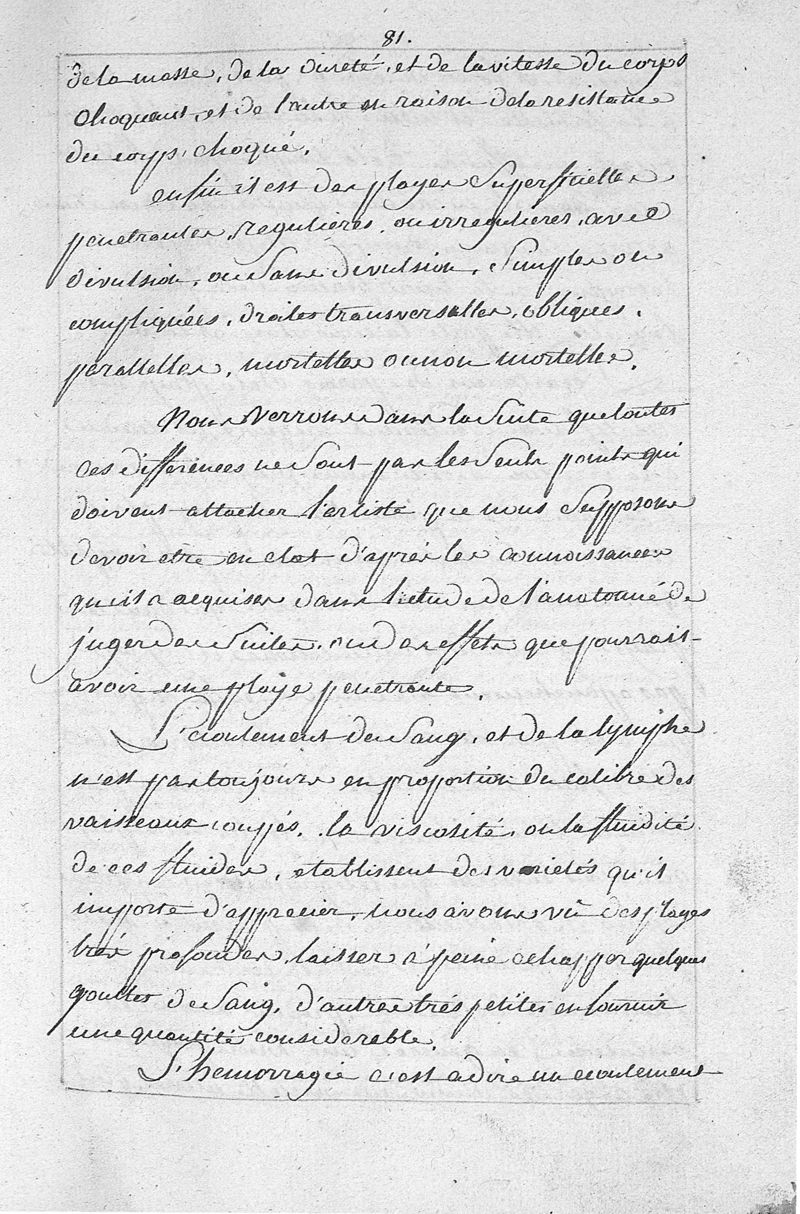 81.
de la masse, de la dureté, et de la vitesse du corps
choquant, et de l'autre en raison de la resistance
du corps choqué.
enfin il est des playes Superficielles
penetrantes, regulieres, ou irregulieres, avec
divulsion, ou Sans divulsion, Simples ou
compliquées, droites transversalles, obliques,
parallelles, mortelles ou non mortelles.
Nous verrons dans la Suite que toutes
ces differences ne Sont pas les Seuls points qui
doivent attacher l'artiste que nous Supposons
devoir etre en etat d'après les connoissances
qu'il a acquises dans l'etude de l'anatomie de
juger des Suites, ou des effets que pourrait
avoir une playe penetrante.
L'ecoulement du Sang, et de la lymphe
n'est pas toujours en proportion du calibre des
vaisseaux coupés. la viscosité, ou la fluidité
de ces fluides, etablissent des varietés qu'il
importe d'apprecier, nous avons vû des playes
trés profondes, laisser à peine echapper quelques
gouttes de Sang, d'autres trés petites en fournir
une quantité considerable.
L'hemorragie c'est a dire un ecoulement